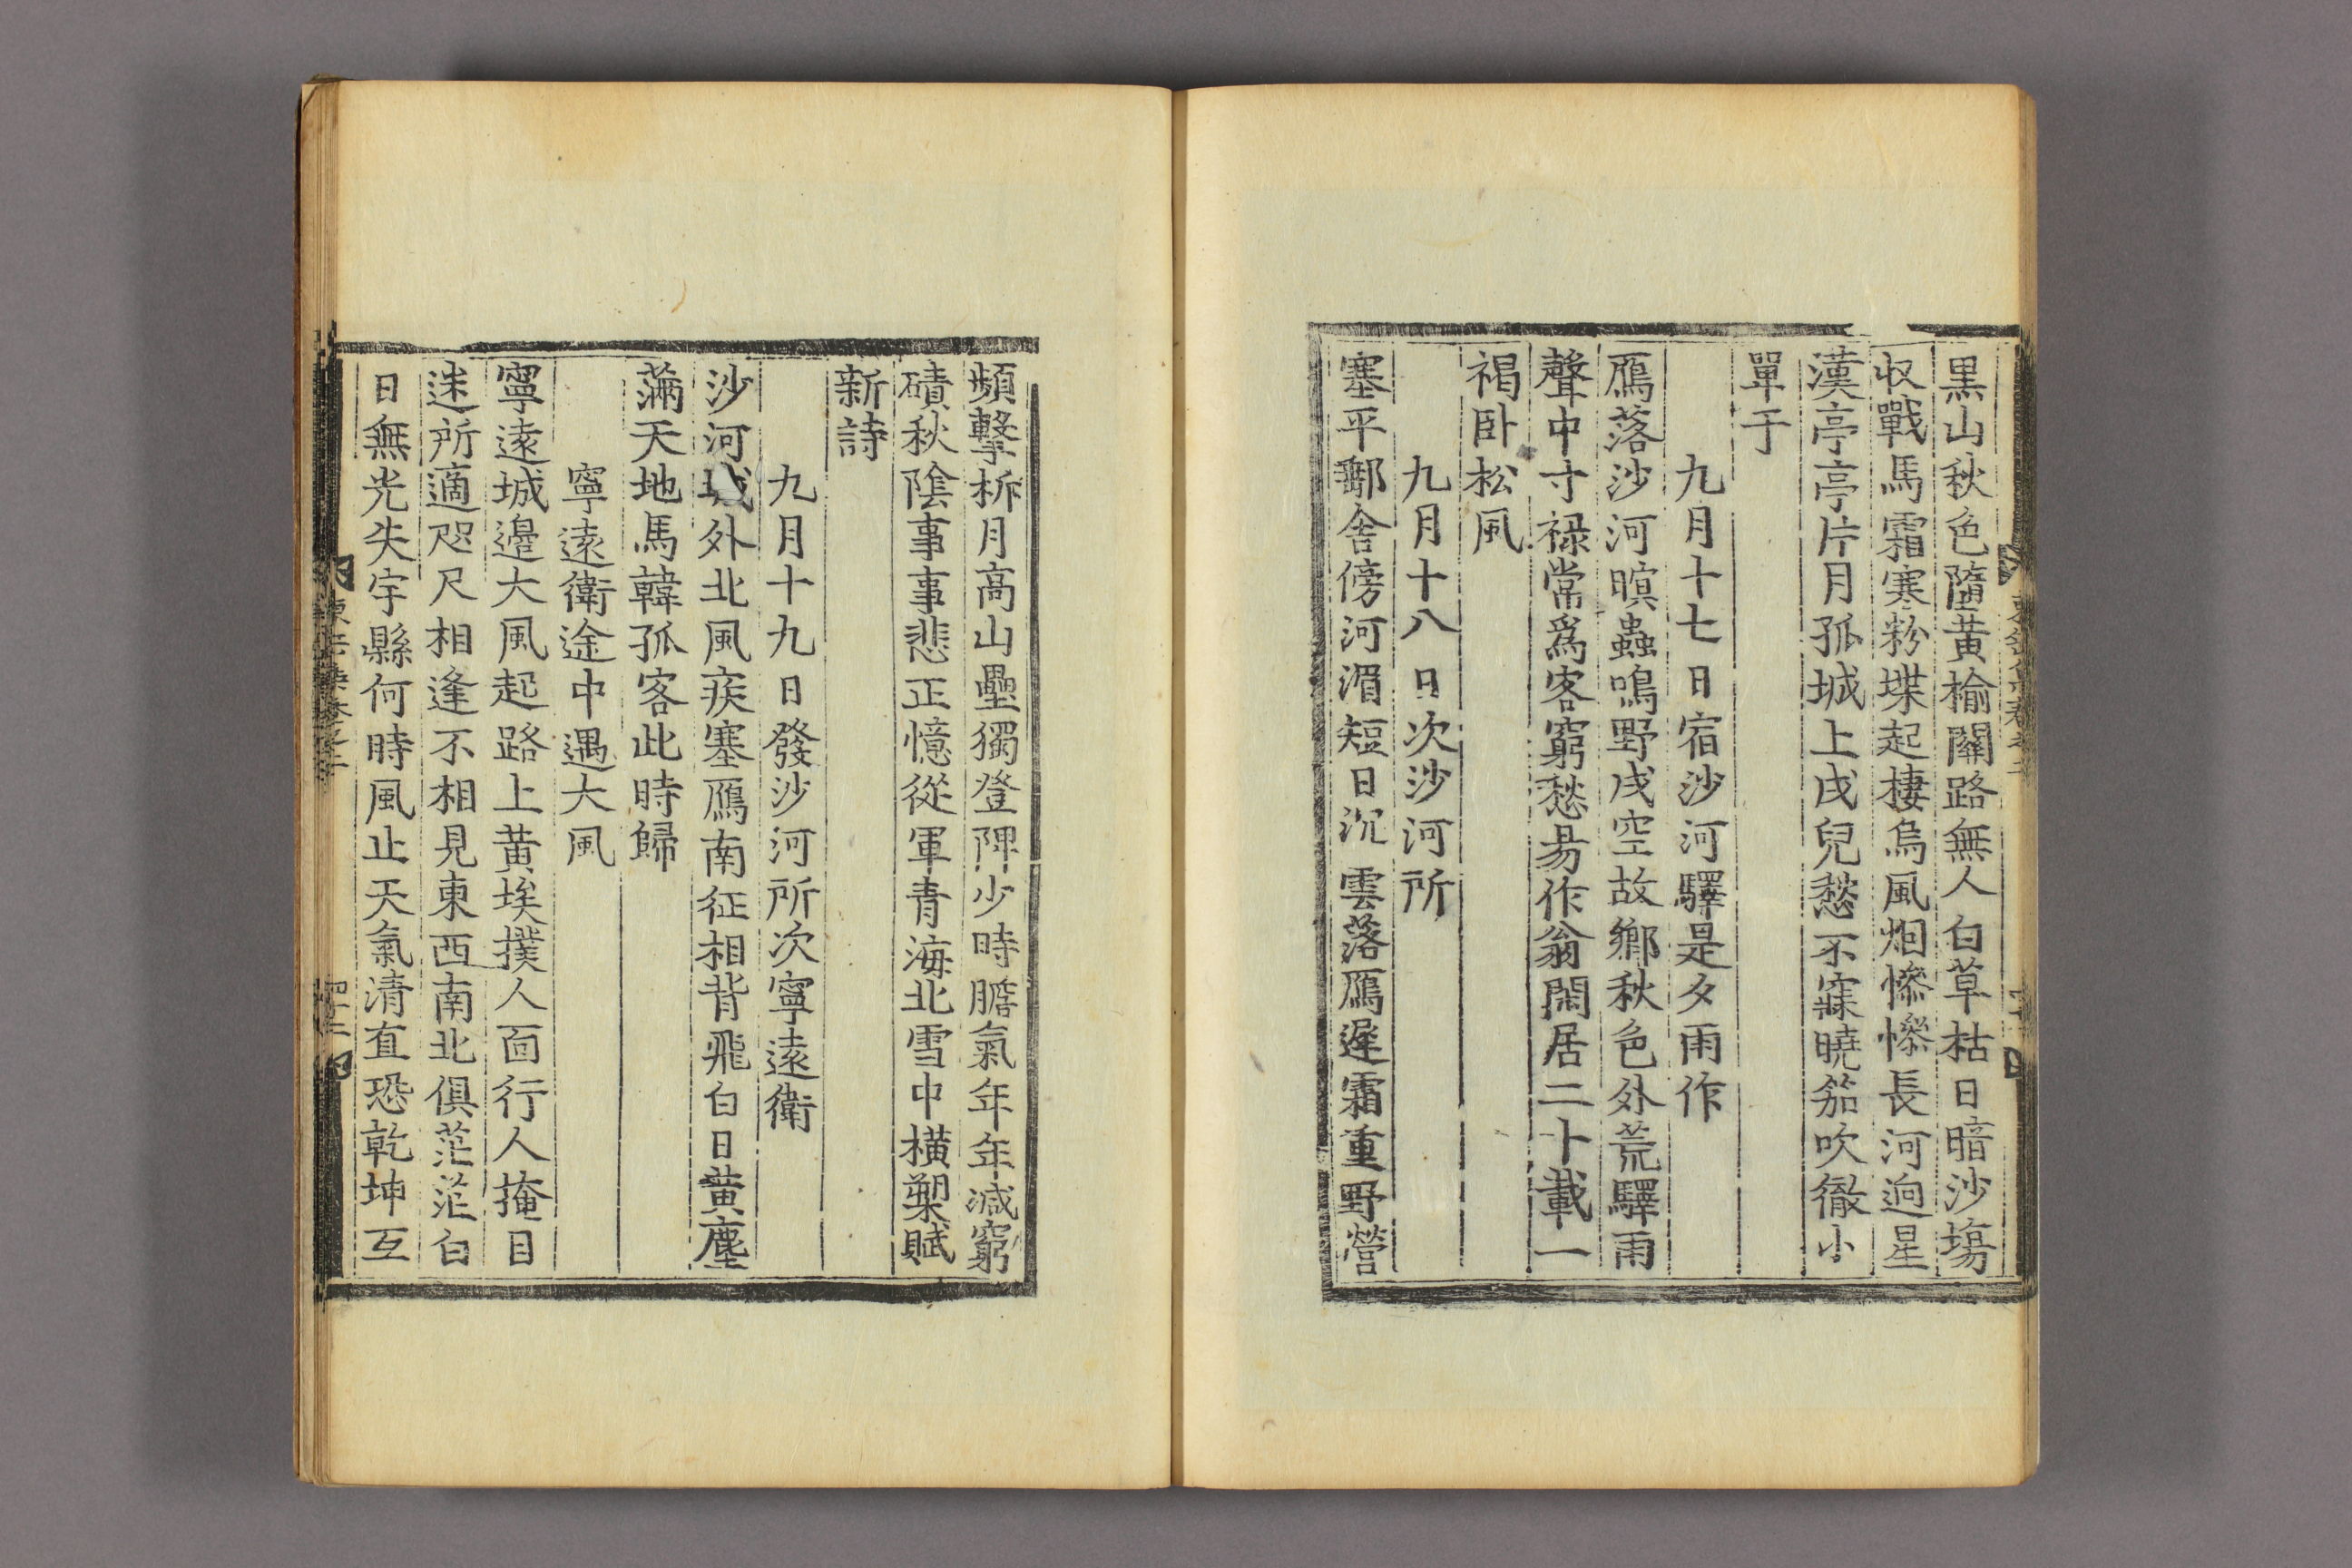 黒山秋色隨黄楡關路無人白草枯日暗沙塲
収戰馬霜寒粉堞起棲烏風烟慘慘長河逈星
漢亭亭片月孤城上戍兒愁不寐曉笳吹徹小
單于
九月十七日宿沙河驛是夕雨作
鴈落沙河暝蟲鳴野戍空故鄉秋色外荒驛雨
聲中寸禄常爲客窮愁易作翁閑居二十載一
褐卧松風
九月十八日次沙河所
塞平鄽舍傍河湄短日沉雲落鴈遲霜重野營
頻擊柝月高山壘獨登陴少時膽氣年年減窮
磧秋陰事事悲正憶從軍青海北雪中橫槊賦
新詩
九月十九日發沙河所次寧遠衛
沙河城外北風疾塞鴈南征相背飛白日黄塵
滿天地馬韓孤客此時歸
寧遠衛途中遇大風
寧遠城邊大風起路上黄埃撲人面行人掩目
迷所適咫尺相逢不相見東西南北俱茫茫白
日無光失宇縣何時風止天氣清直恐乾坤互